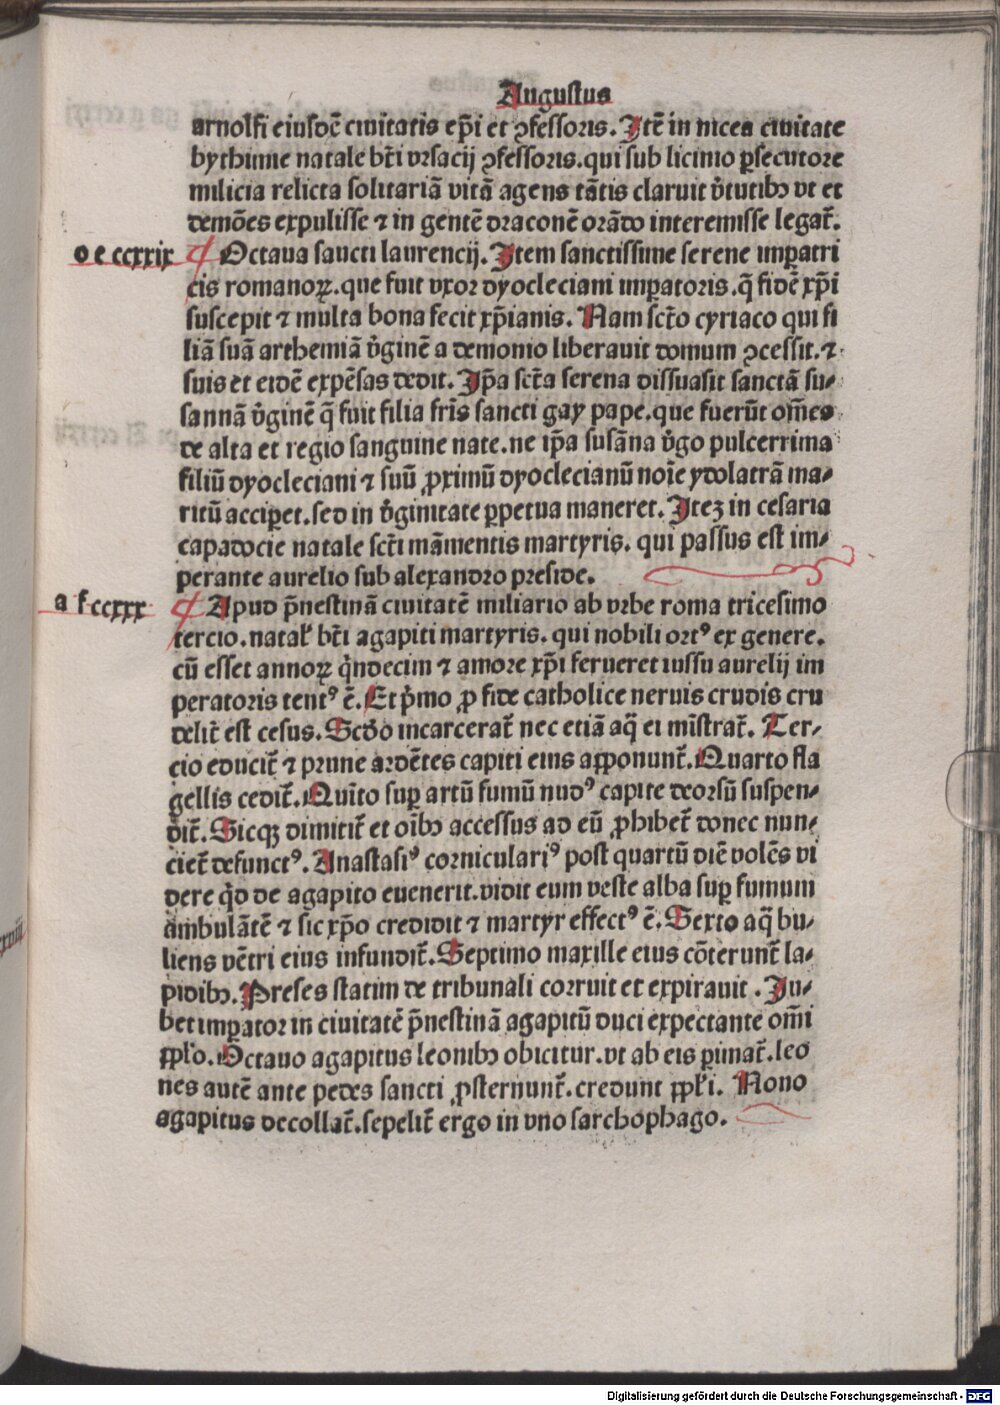 Augustus
arnolfi eiusdē ciuitatis ep̄i et ꝯfessoris. Itē in nicea ciuitate
bythinie natale bt̄i vrsacij ꝯfessoris. qui sub licinio ꝑsecutore
milicia relicta solitariā vitā agens tātis claruit v̓tutibꝰ vt et
demōes expulisse ⁊ in gentē draconē orādo interemisse legat̄.
o e ccxxix ¶ Octaua sancti laurencij. Item sanctissime serene imꝑatri
cis romanoꝝ. que fuit vxor dyocleciani imꝑatoris. q̄ fidē xp̄i
suscepit ⁊ multa bona fecit xp̄ianis. Nam sct̄o cyriaco qui fi
liā suā arthemiā v̓ginē a demonio liberauit domum ꝯcessit. ⁊
suis et eidē expēsas dedit. Ip̄a sct̄a serena dissuasit sanctā su⸗
sannā v̓ginē q̄ fuit filia fr̄is sancti gay pape. que fuerūt om̄es
de alta et regio sanguine nate. ne ip̄a susāna v̓go pulcerrima
filiū dyocleciani ⁊ suū ꝓximū dyoclecianū noīe ydolatrā ma⸗
ritū acciꝑet. sed in v̓ginitate ꝑpetua maneret. Iteꝫ in cesaria
capadocie natale sct̄i māmentis martyris. qui passus est im⸗
perante aurelio sub alexandro preside.
a f ccxxx ¶ Apud p̄nestinā ciuitatē miliario ab vrbe roma tricesimo
tercio. natal̄ bt̄i agapiti martyris. qui nobili ortꝰ ex genere.
cū esset annoꝝ q̓ndecim ⁊ amore xp̄i ferueret iussu aurelij im
peratoris tentꝰ ē. Et p̓mo ꝓ fide catholice neruis crudis cru
delit̄ est cesus. Scd̓o incarcerat̄ nec etiā aq̄ ei mīstrat̄. Ter⸗
cio educit̄ ⁊ prune ardētes capiti eius aꝑponunt̄. Quarto fla
gellis cedit̄. Quīto suꝑ artū fumū nudꝰ capite deorsū suspen⸗
dit̄. Sicqꝫ dimitit̄ et oībꝰ accessus ad eū ꝓhibet̄ donec nun⸗
ciet̄ defunctꝰ. Anastasiꝰ corniculariꝰ post quartū diē volēs vi
dere q̓d de agapito euenerit. vidit eum veste alba suꝑ fumum
ambulātē ⁊ sic xp̄o credidit ⁊ martyr effectꝰ ē. Sexto aq̄ bu⸗
liens vētri eius infundit̄. Septimo maxille eius cōterunt̄ la⸗
pidibꝰ. Preses statim de tribunali corruit et expirauit. Iu⸗
bet imꝑator in ciuitatē p̄nestinā agapitū duci expectante om̄i
ꝓpl̓o. Octauo agapitus leonibꝰ obicitur. vt ab eis ꝑimat̄. leo
nes autē ante pedes sancti ꝓsternunt̄. credunt ꝓpl̓i. Nono
agapitus decollat̄. sepelit̄ ergo in vno sarchophago.
Digitalisierung gefördert durch die Deutsche Forschungsgemeinschaft - DFG